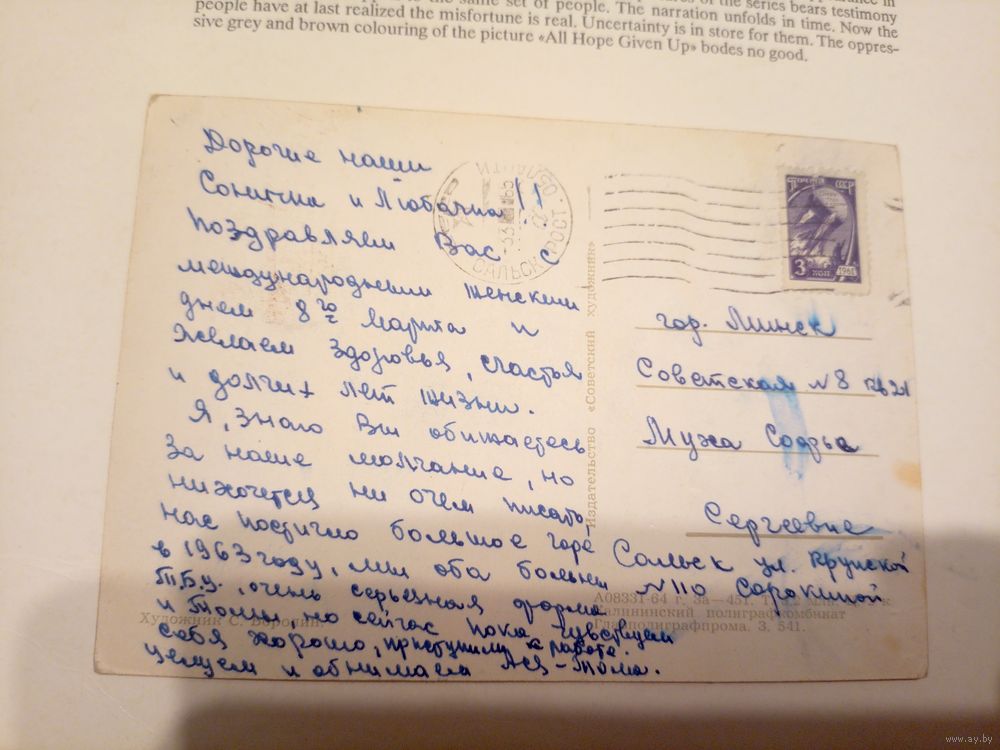 people have at last realized the misfortune is real. Uncertainty is in store for them. The oppres-
sive grey and brown colouring of the picture «All Hope Given Up» bodes no good.
Дорогие наши
Сонечка и Любочка!!
Поздравляем Вас с
международным женским
днем 8го Марта и
желаем здоровья, счастья
и долгих лет жизни.
Я, знаю Вы обижаетесь
за наше молчание, но
нихочется ни очем писать,
нас постигло большое горе
в 1963 году, мы оба больны
Т.Б.Ц., очень серьезная форма
и Толи, но сейчас пока чувствуем
себя хорошо, приступили к работе.
целуем и обнимаем Ася - Тома.
ПОЧТА СССР
3 КОП 1961
САЛЬСК РОСТ
гор. Минск
Советская N 8 кв 21
Муха Софье
Сергеевне
Сальск ул. Крупской
N 110 Сорокиной
Издательство «Советский художник»
А08331-64 г.
Калининский полиграфкомбинат
Главполиграфпрома. З. 541.
Художник С.
www.ay.by